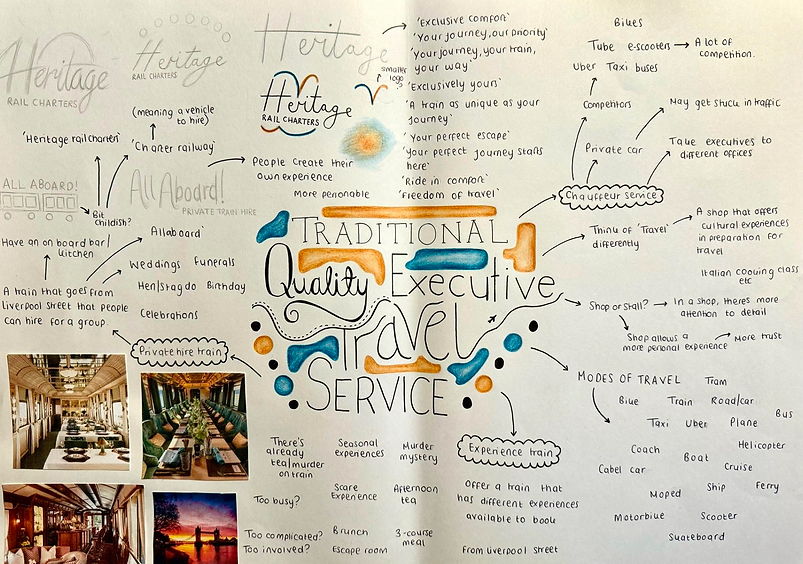 Heritage
RAIL CHARTERS
Heritage
RAIL CHARTERS
Heritage
smaller
logo
Heritage
RAIL
CHARTERS
(meaning a vehicle
to hire)
'Heritage rail charters'
'Charter railway'
ALL ABOARD!
All Aboard!
PRIVATE TRAIN HIRE
Bit
childish?
People create their
own experience
More personable
'Exclusive comfort'
'Your journey, our priority'
'Your journey, your train,
your way'
'Exclusively yours'
'A train as unique as your
journey'
'Your perfect escape'
'Your perfect journey starts
here'
'Ride in comfort'
'Freedom of travel'
Bikes
Tube e-scooters
A lot of
competition.
Uber Taxi buses
Competitors
May get stuck in traffic
Private car
Take executives to
different offices
Chauffeur service
Think of 'Travel'
differently
A shop that offers
cultural experiences
in preparation for
travel
Italian cooking class
etc
Shop or stall?
In a shop, theres more
attention to detail
Shop allows a
more personal experience
More trust
TRADITIONAL
Quality Executive
Travel
SERVICE
Have an on board bar/
kitchen
Allaboard'
A train that goes from
Liverpool street that people
can hire for a group.
Weddings Funerals
Hen/Stag do Birthday
Celebrations
Private hire train
MODES OF TRAVEL
Tram
Bike Train Road/car
Taxi Uber Plane Bus
Coach Boat Helicopter
Cabel car Cruise
Moped Ship Ferry
Motorbike Scooter
Skateboard
Experience train
Offer a train that
has different experiences
available to book
From liverpool street
There's
already
tea/murder
on train
Seasonal
experiences
Murder
mystery
Too busy?
Scare
Experience
Afternoon
tea
Too complicated?
Too involved?
Brunch
Escape room
3-course
meal